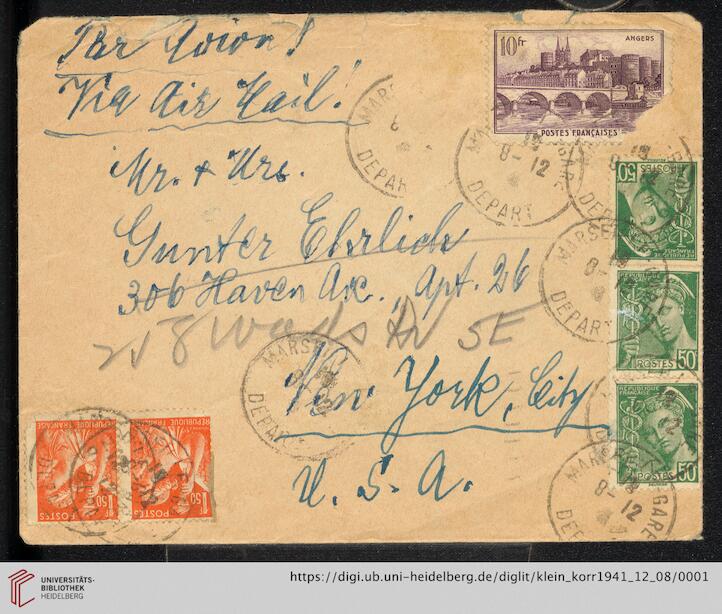 Par Avion!
Via Air Mail!
Mr. & Mrs.
Gunter Ehrlich
306 Haven Ave., Apt. 26
New York, City
U. S. A.
10fr
ANGERS
POSTES FRANÇAISES
MARSE
DEPART
8-12
GARE
DEPART
MARSEI
8-
DEPART
MARSE
DEPAR
MARSEI
GARE
8-12
POSTES
50
REPUBLIQUE FRANÇAISE
POSTES
50F
REPUBLIQUE FRANÇAISE
POSTES
50F
REPUBLIQUE FRANÇAISE
POSTES
1F50
REPUBLIQUE FRANÇAISE
POSTES
1F50
UNIVERSITÄTS-
BIBLIOTHEK
HEIDELBERG
https://digi.ub.uni-heidelberg.de/diglit/klein_korr1941_12_08/0001